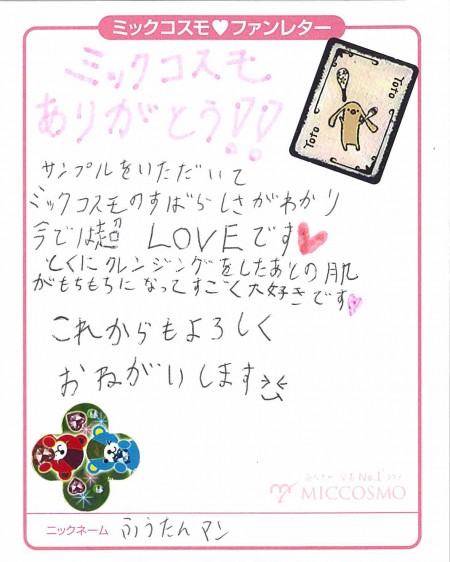 ミックコスモ♥ファンレター
ミックコスモ
ありがとう!!
Toto
Toto
サンプルをいただいて
ミックコスモのすばらしさがわかり
今では超 LOVEです♥
とくにクレンジングをしたあとの肌
がもちもちになってすごく大好きです♥
これからもよろしく
おねがいします
No.1
MICCOSMO
ニックネーム ふうたんマン